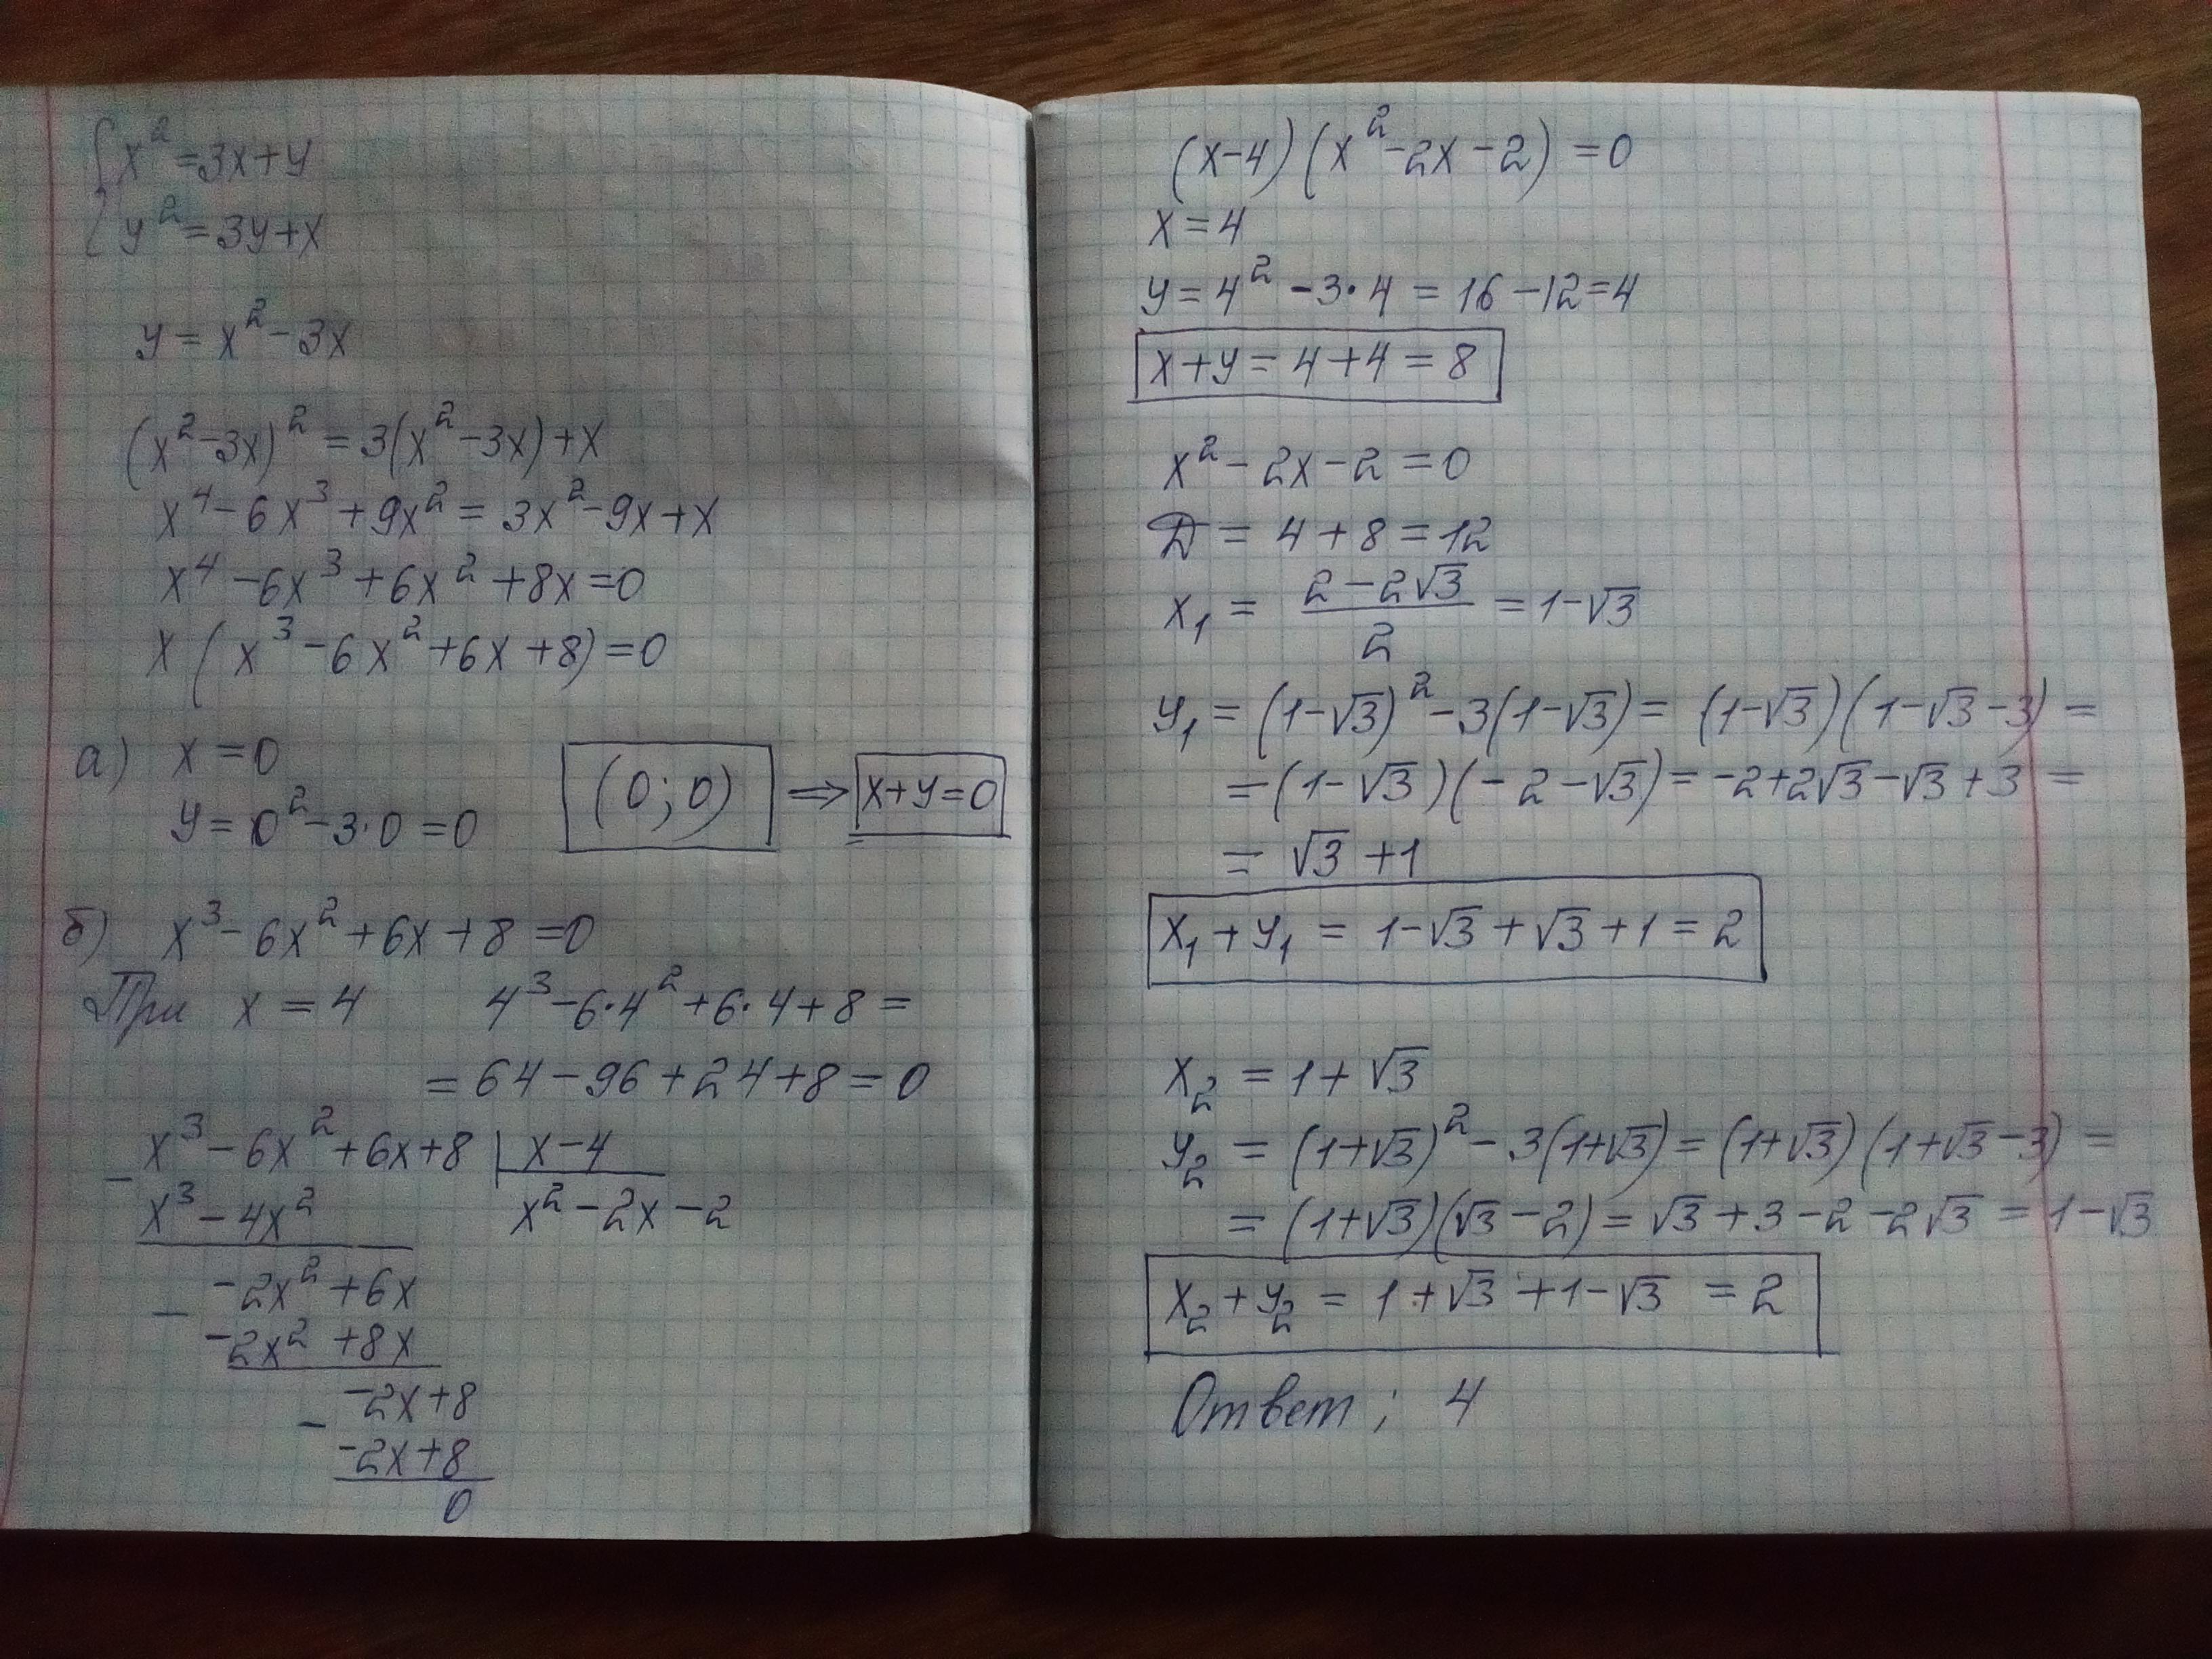 {x² = 3x+y
{y² = 3y+x
y = x² - 3x
(x² - 3x)² = 3(x² - 3x) + x
x⁴ - 6x³ + 9x² = 3x² - 9x + x
x⁴ - 6x³ + 6x² + 8x = 0
x(x³ - 6x² + 6x + 8) = 0
а) x = 0
y = 0² - 3·0 = 0 (0; 0) ⇒ x+y=0
б) x³ - 6x² + 6x + 8 = 0
При x = 4 4³ - 6·4² + 6·4 + 8 =
= 64 - 96 + 24 + 8 = 0
- x³ - 6x² + 6x + 8 | x - 4
x³ - 4x² x² - 2x - 2
- -2x² + 6x
-2x² + 8x
- -2x + 8
-2x + 8
0
(x-4)(x² - 2x - 2) = 0
x = 4
y = 4² - 3·4 = 16 - 12 = 4
x+y = 4+4 = 8
x² - 2x - 2 = 0
Д = 4 + 8 = 12
x₁ = (2 - 2√3)/2 = 1-√3
y₁ = (1-√3)² - 3(1-√3) = (1-√3)(1-√3-3) =
= (1-√3)(-2-√3) = -2+2√3-√3+3 =
= √3 + 1
x₁ + y₁ = 1-√3 + √3 + 1 = 2
x₂ = 1 + √3
y₂ = (1+√3)² - 3(1+√3) = (1+√3)(1+√3-3) =
= (1+√3)(√3-2) = √3 + 3 - 2 - 2√3 = 1-√3
x₂ + y₂ = 1 + √3 + 1 - √3 = 2
Ответ; 4